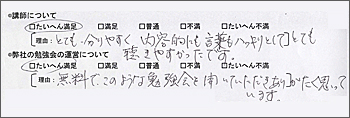 ●講師について
□たいへん満足 □満足 □普通 □不満 □たいへん不満
[理由:とても、分りやすく 内容的にも言葉もハッキリとして]とても
聴きやすかったです。
●弊社の勉強会の運営について
□たいへん満足 □満足 □普通 □不満 □たいへん不満
[理由:無料で、このような勉強会を開いていただきあり]がたく思って
います。